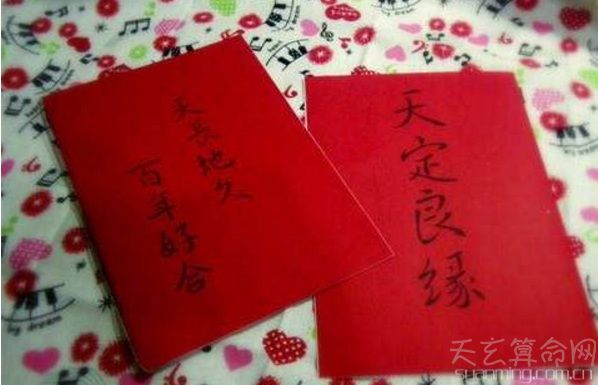 天长地久
百年好合
天定良缘
by dream
天玄算命网
suanming.com.cn